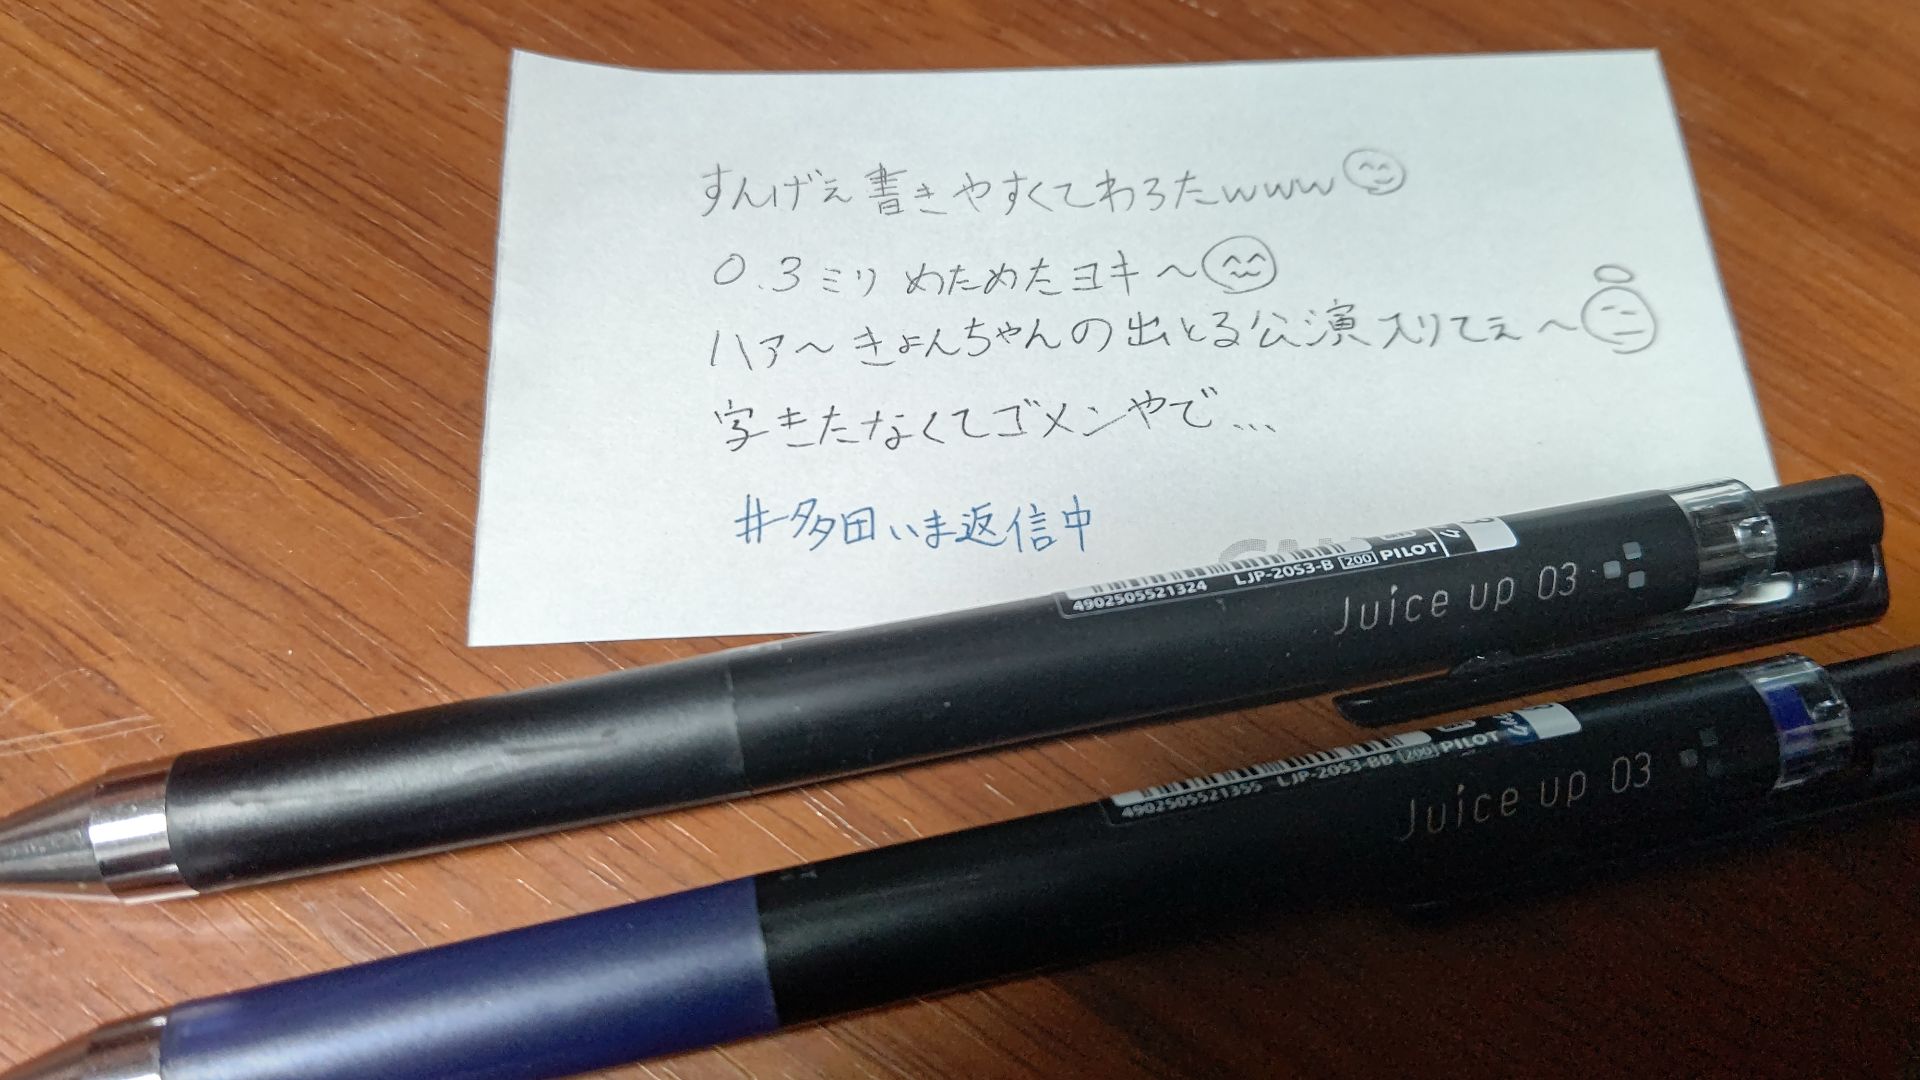 すんげぇ書きやすくてわろたwww
0.3ミリ めためたヨキ〜
ハァ〜きょんちゃんの出とる公演入りてぇ〜
字きたなくてゴメンやで...
#多田いま返信中
4902505521324 LJP-20S3-B 200 PILOT
Juice up 03
4902505521355 LJP-20S3-BB 200 PILOT
Juice up 03